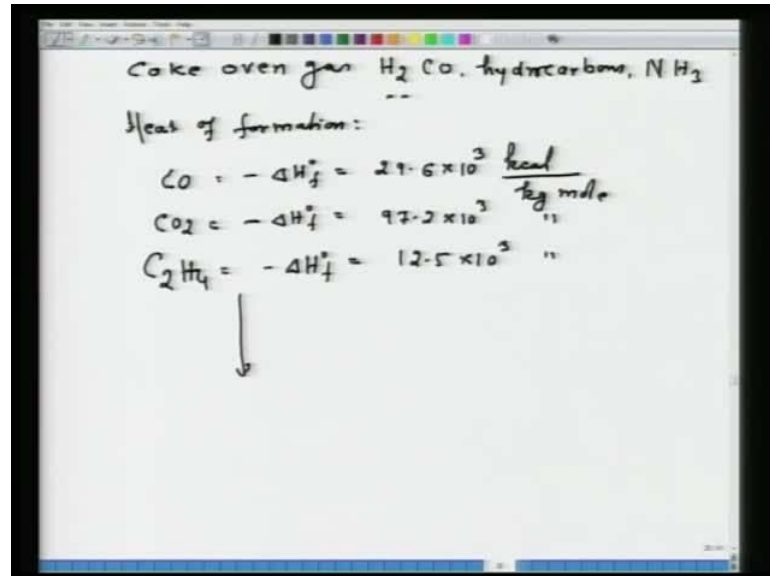 Coke oven gas H2 Co. hydrocarbons, NH3
Heat of formation:
CO = - ΔH°f = 29.6×10³ kcal/kg mole
CO2 = - ΔH°f = 97.2×10³ "
C2H4 = - ΔH°f = 12.5×10³ "